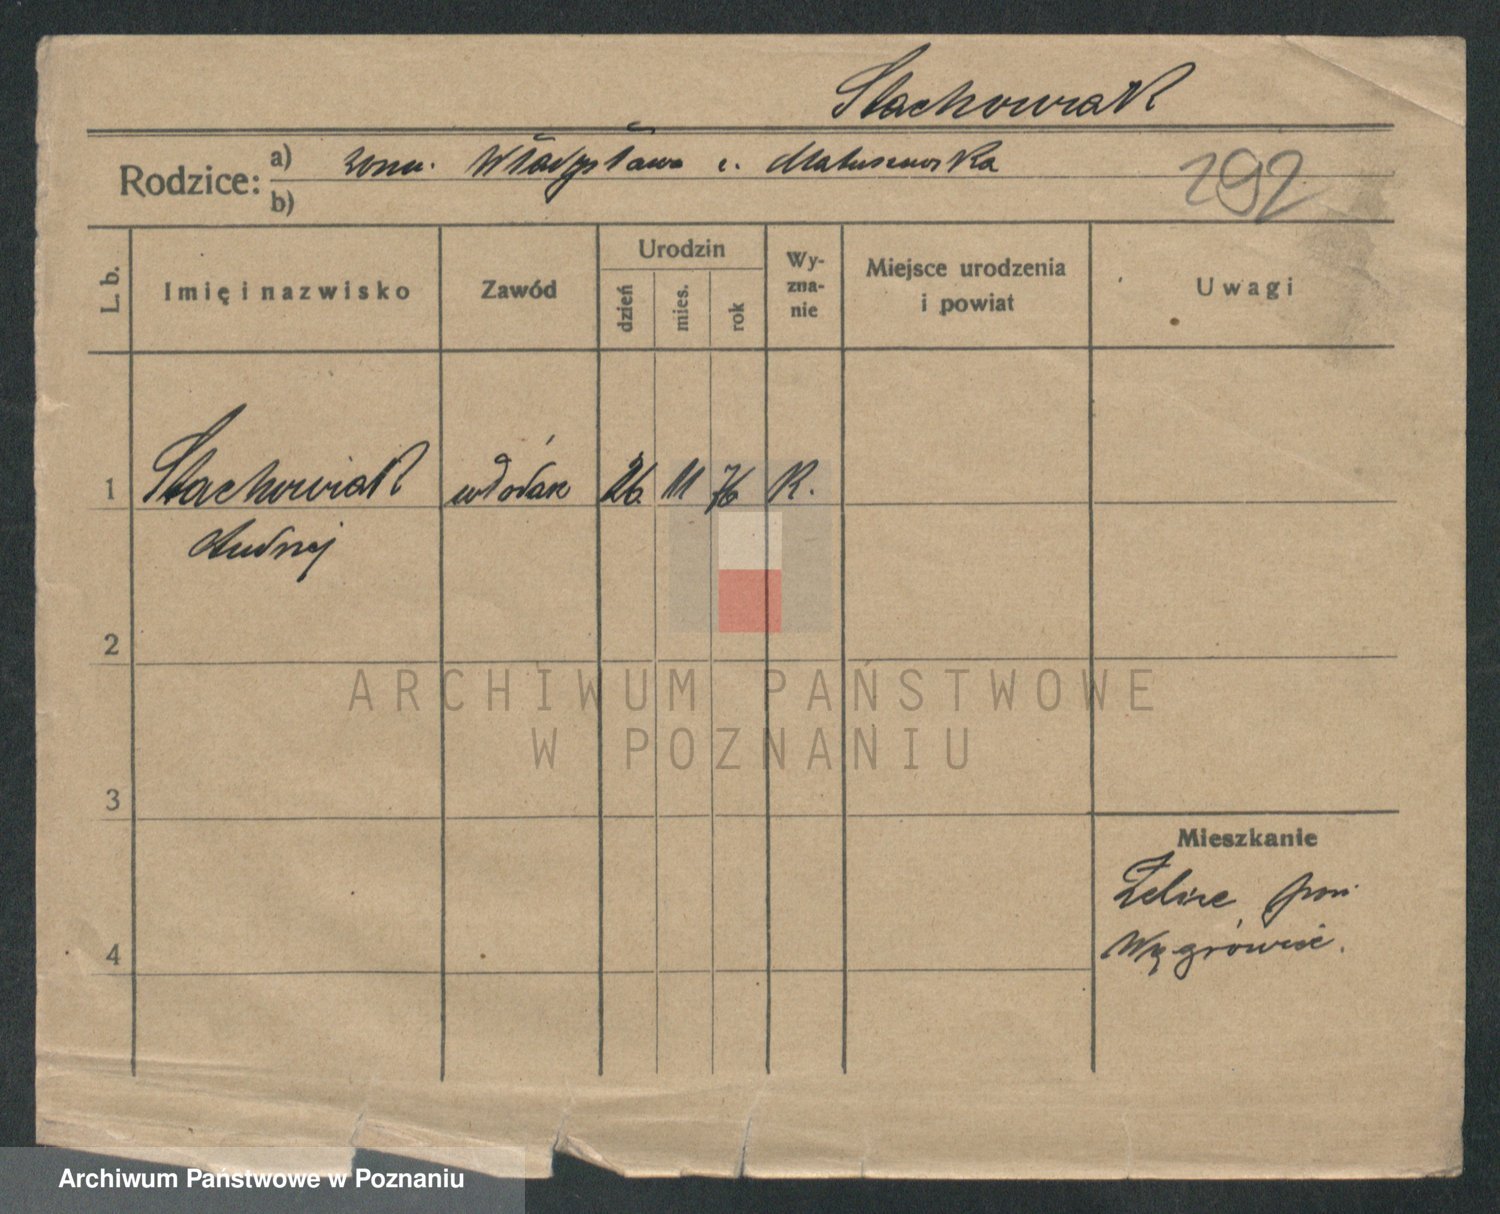 Stachowiak
Rodzice: a) żona. Władysława z. Matuszewska
b)
292
L. b.
Imię i nazwisko
Zawód
Urodzin
dzień
mies.
rok
Wy-
zna-
nie
Miejsce urodzenia
i powiat
Uwagi
1 Stachowiak włodarz 26 11 76 K.
Andrzej
2
3
4
Mieszkanie
Żelice pow
Wągrówiec.
ARCHIWUM PAŃSTWOWE
W POZNANIU
Archiwum Państwowe w Poznaniu